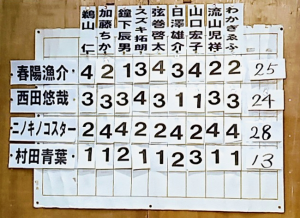 鵜山 仁
加藤ちか
鐘下辰男
スズキ拓朗
弦巻啓太
日澤雄介
山口宏子
流山児祥
わかぎゑふ
春陽漁介 4 2 1 3 4 3 4 2 2 25
西田悠哉 3 3 3 4 3 2 1 3 3 24
ニノキノコスター 2 4 4 2 2 4 2 4 4 28
村田青葉 1 1 2 1 1 2 3 1 1 13